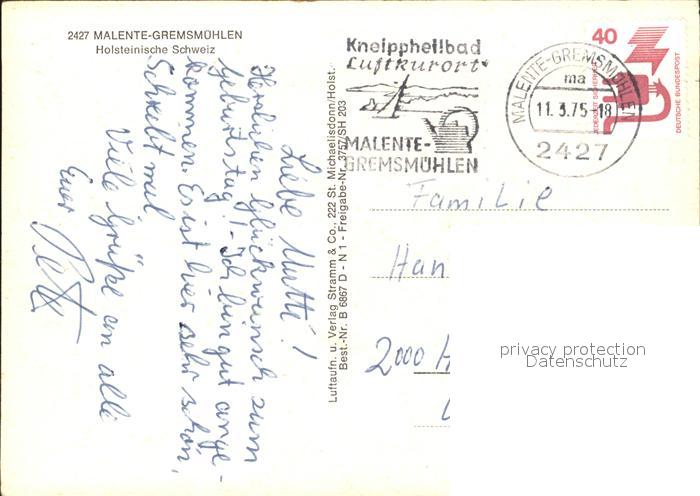 2427 MALENTE-GREMSMÜHLEN
Holsteinische Schweiz
Liebe Mutti!
Herzlichen Glückwunsch zum
Geburtstag! - Ich bin gut ange-
kommen. Es ist hier sehr schön.
Schreibt mal
Viele Grüße an alle
Euer Peter
Luftaufn. u. Verlag Stramm & Co., 222 St. Michaelisdonn/Holst.
Best.-Nr. B 6867 D - N 1 - Freigabe-Nr. 3757/SH 203
Kneippheilbad
Luftkurort
MALENTE-
GREMSMÜHLEN
MALENTE-GREMSMÜHLEN
ma
11.3.75-18
2427
40
JEDERZEIT SICHERHEIT
DEUTSCHE BUNDESPOST
Familie
Han
2000 H
privacy protection
Datenschutz